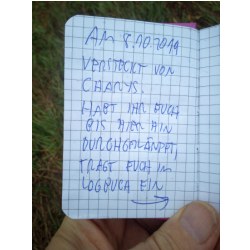 AM 8.10.2019
VERSTECKT VON
CHANYS.
HABT IHR EUCH
BIS HIER HIN
DURCHGEKÄMPFT,
TRAGT EUCH IM
LOGBUCH EIN